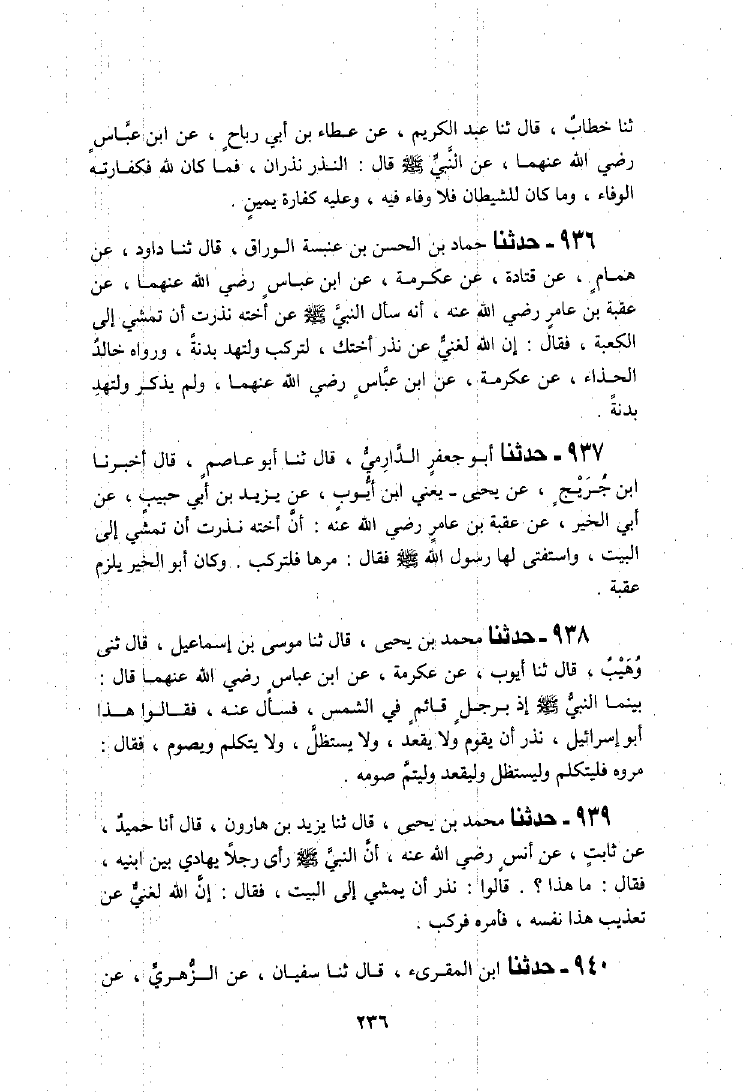 ثنا خطابٌ ، قال ثنا عبد الكريم ، عن عطاء بن أبي رباحٍ ، عن ابن عبَّاسٍ
رضي الله عنهما ، عن النَّبيِّ ﷺ قال : النذر نذران ، فما كان لله فكفارته
الوفاء ، وما كان للشيطان فلا وفاء فيه ، وعليه كفارة يمينٍ .
٩٣٦ ـ حدثنا حماد بن الحسن بن عنبسة الوراق ، قال ثنا داود ، عن
همامٍ ، عن قتادة ، عن عكرمة ، عن ابن عباسٍ رضي الله عنهما ، عن
عقبة بن عامرٍ رضي الله عنه ، أنه سأل النبيَّ ﷺ عن أخته نذرت أن تمشي إلى
الكعبة ، فقال : إن الله لغنيٌّ عن نذر أختك ، لتركب ولتهد بدنةً ، ورواه خالدٌ
الحذاء ، عن عكرمة ، عن ابن عبَّاسٍ رضي الله عنهما ، ولم يذكر ولتهدِ
بدنةً .
٩٣٧ ـ حدثنا أبو جعفرٍ الدَّارميُّ ، قال ثنا أبو عاصمٍ ، قال أخبرنا
ابن جُرَيْجٍ ، عن يحيى ـ يعني ابن أيُّوب ، عن يزيد بن أبي حبيبٍ ، عن
أبي الخير ، عن عقبة بن عامرٍ رضي الله عنه : أنَّ أخته نذرت أن تمشي إلى
البيت ، واستفتى لها رسول الله ﷺ فقال : مرها فلتركب . وكان أبو الخير يلزم
عقبة .
٩٣٨ ـ حدثنا محمد بن يحيى ، قال ثنا موسى بن إسماعيل ، قال ثنى
وُهَيْبٌ ، قال ثنا أيوب ، عن عكرمة ، عن ابن عباسٍ رضي الله عنهما قال :
بينما النبيُّ ﷺ إذ برجلٍ قائمٍ في الشمس ، فسأل عنه ، فقالوا هذا
أبو إسرائيل ، نذر أن يقوم ولا يقعد ، ولا يستظلَّ ، ولا يتكلم ويصوم ، فقال :
مروه فليتكلم وليستظل وليقعد وليتمَّ صومه .
٩٣٩ ـ حدثنا محمد بن يحيى ، قال ثنا يزيد بن هارون ، قال أنا حميدٌ ،
عن ثابتٍ ، عن أنسٍ رضي الله عنه ، أنَّ النبيَّ ﷺ رأى رجلاً يهادي بين ابنيه ،
فقال : ما هذا ؟ . قالوا : نذر أن يمشي إلى البيت ، فقال : إنَّ الله لغنيٌّ عن
تعذيب هذا نفسه ، فأمره فركب .
٩٤٠ ـ حدثنا ابن المقرىء ، قال ثنا سفيان ، عن الزُّهريِّ ، عن
٢٣٦